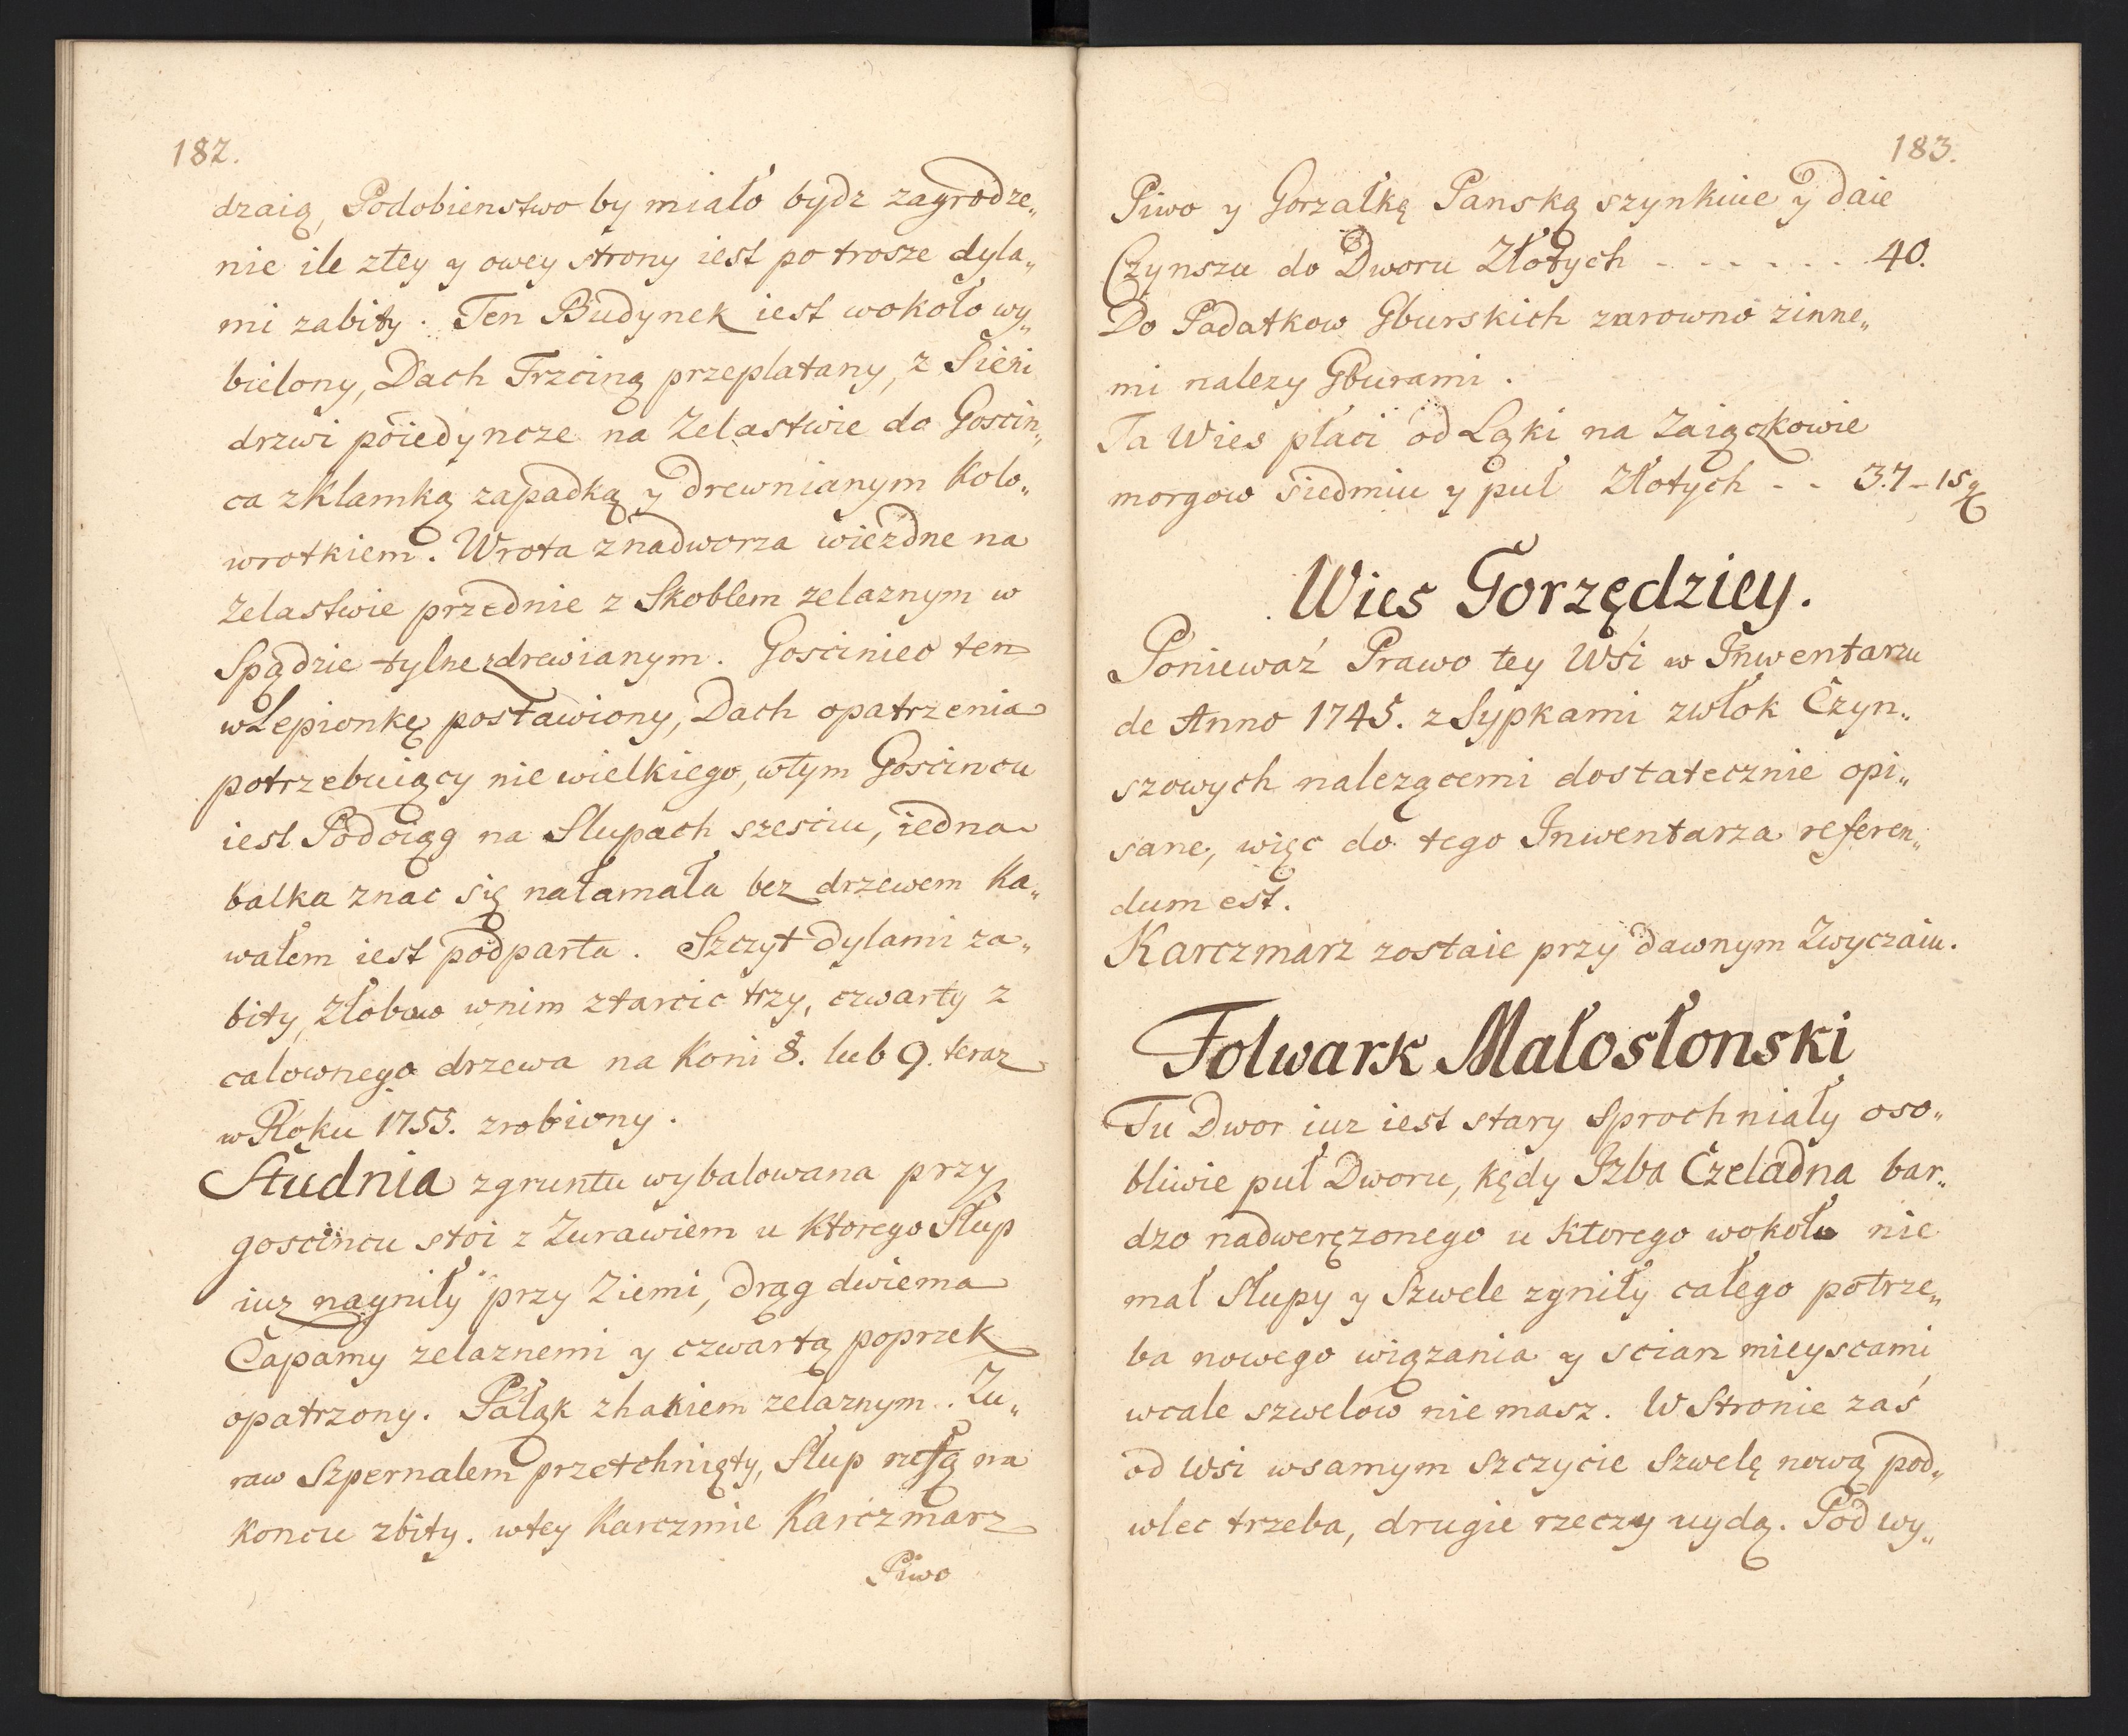 182.
dzaią, Podobienstwo by miało bydz zagrodze„
nie ile ztey y owey strony iest po trosze dyla„
mi zabity. Ten Budynek iest wokoło wy„
bielony, Dach Trzciną przeplatany, z Sieni
drzwi poiedyncze na Zelastwie do Goscin„
ca z Klamką zapadką y drewnianym Kolo„
wrotkiem. Wrota znadworza wiezdne na
Zelastwie przednie z Skoblem zelaznym w
Spądzie tylne zdrewianym. Gosciniec ten
w Lepionkę postawiony, Dach opatrzenia
potrzebuiący nie wielkiego, wtym Goscincu
iest Podciąg na Slupach szesciu, iedna
balka znac się nałamała bez drzewem Ka„
wałem iest podparta. Szczyt dylami za„
bity, Złobow wnim ztarcic trzy, czwarty z
calownego drzewa na Koni 8. lub 9. teraz
w Roku 1755. zrobiony.
Studnia zgruntu wybalowana przy
goscincu stoi z Zurawiem u Ktorego Słup
iuz nagniły przy Ziemi, drąg dwiema
Capamy zelaznemi y czwartą poprzek
opatrzony. Pałąk zhakiem zelaznym. Zu„
raw Szpernalem przetchnięty, Słup resą na
Koncu zbity. wtey Karczmie Karczmarz
Piwo
183.
Piwo y Gorzałkę Panską szynkuie y daie
Czynszu do Dworu Złotych - - - - - - 40.
Do Padatkow Gburskich zarowno zinne„
mi nalezy Gburami.
Ta Wies płaci od Ląki na Zaiączkowie
morgow siedmiu y puł Złotych - - 37 - 15 g
Wies Gorzędziey.
Ponieważ Prawo tey Wsi w Inwentarzu
de Anno 1745. z Sypkami zwłok Czyn„
szowych nalezącemi dostatecznie opi„
sane, więc do tego Inwentarza referen„
dum est.
Karczmarz zostaie przy dawnym Zwyczaiu.
Folwark Małosłonski
Tu Dwor iuz iest stary Sprochniały oso„
bliwie puł Dworu, kędy Izba Czeladna bar„
dzo nadweręzonego u Ktorego wokoło nie
mal Słupy y Szwele zgniły całego potrze„
ba nowego wiązania y scian mieyscami
wcale szwelow nie masz. W Stronie zaś
od Wsi wsamym Szczycie Szwelę nową pod„
wlec trzeba, drugie rzeczy uydą. Pod wy„